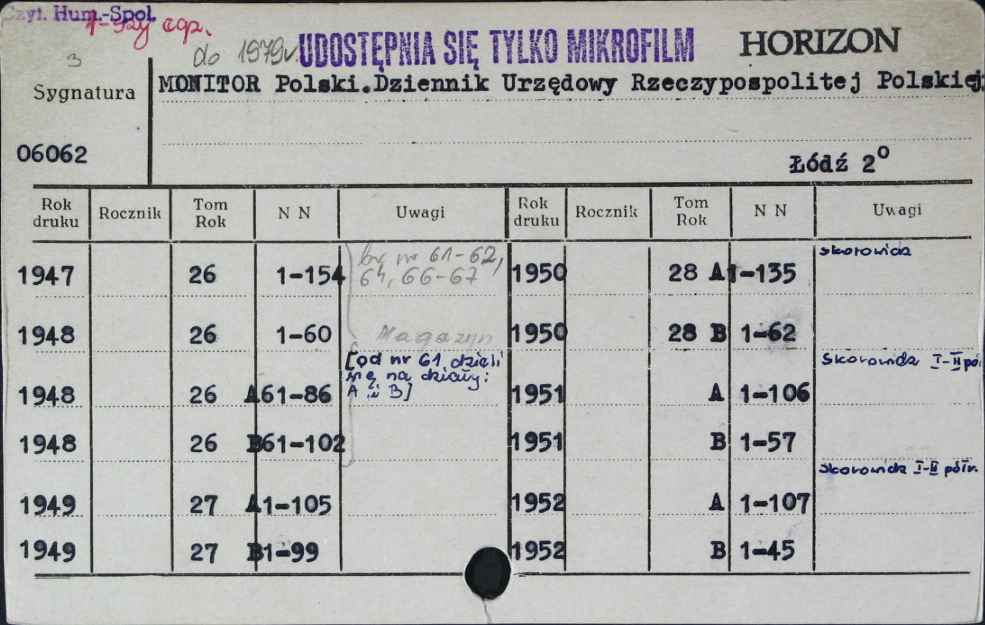 Czyt. Hum.-Społ.
1-szy egz.
3
do 1979r.
UDOSTĘPNIA SIĘ TYLKO MIKROFILM
HORIZON
Sygnatura
MONITOR Polski.Dziennik Urzędowy Rzeczypospolitej Polskiej
06062
Łódź 2°
Rok druku Rocznik Tom Rok N N Uwagi Rok druku Rocznik Tom Rok N N Uwagi
1947 26 1-154 br nr 61-62, 64, 66-67 1950 28 A 1-135 skorowidz
1948 26 1-60 Magazyn 1950 28 B 1-62
1948 26 A 61-86 [od nr 61 dzieli się na działy: A i B] 1951 A 1-106 Skorowidz I-II pół
1948 26 B 61-102 1951 B 1-57
1949 27 A 1-105 1952 A 1-107 Skorowidz I-II półr.
1949 27 B 1-99 1952 B 1-45